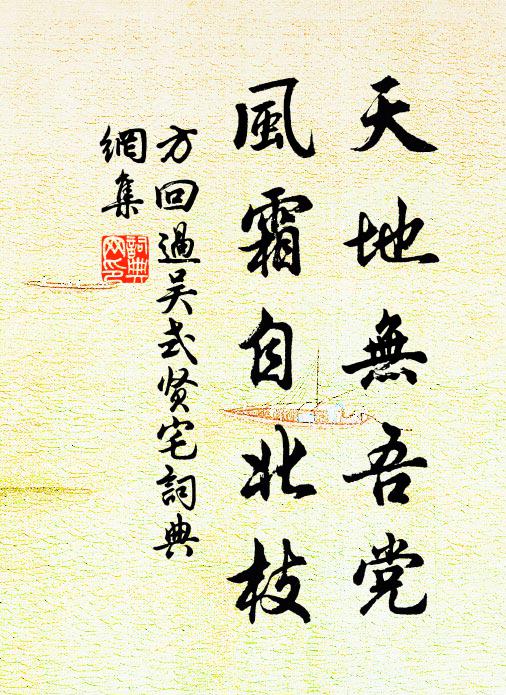 天地無吾党
風霜自北枝
方回過吴式贤宅詞典
網集
詞典网印